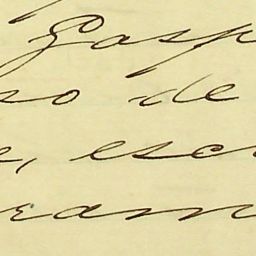 Gasp
so de
e, escr
ram